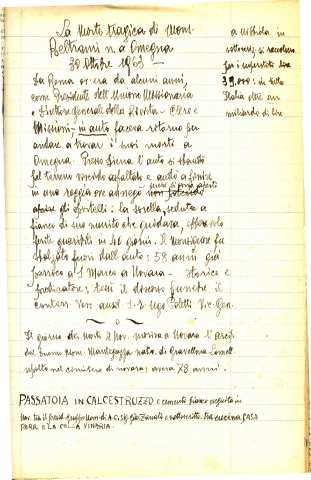 La Morte tragica di Mons.
Beltrami n. a Omegna
30 Ottobre 1963 -
Da Roma or'era da alcuni anni,
come Presidente dell'Unione Missionaria
e direttore generale della Rivista - Clero e
Missioni -, in auto faceva ritorno per
andare a trovar i suoi morti a
Omegna. Presso Siena l'auto si sbandò
sul terreno viscido asfaltato e andò a finire
in una roggia ove annegò
gli sportelli: la sorella, seduta a
fianco di suo marito che guidava,
ferite guaribili in 40 giorni. Il Monsignore fu
sbalzato fuori dall'auto: 58 anni già
parroco a S. Marco a Novara - storico e
predicatore; tenne il discorso funebre il
Vesc. ausil. S. E. Ugo Poletti Vic. Gen.
- o -
Il giorno dei morti 2 Nov. moriva a Novara l'arcip.
del Duomo Mons. nato a Gravellona Lomell.
sepolto nel cimitero di novara; aveva 78 anni.
PASSATOIA IN CALCESTRUZZO e cemento bianco eseguita in
Nov. tra il e sottoscritto. Tra cucina CASA
PARR. E LA CELLA VINARIA.
a
si raccolsero
per i superstiti lire
39.000: in tutta
Italia oltre un
miliardo di lire